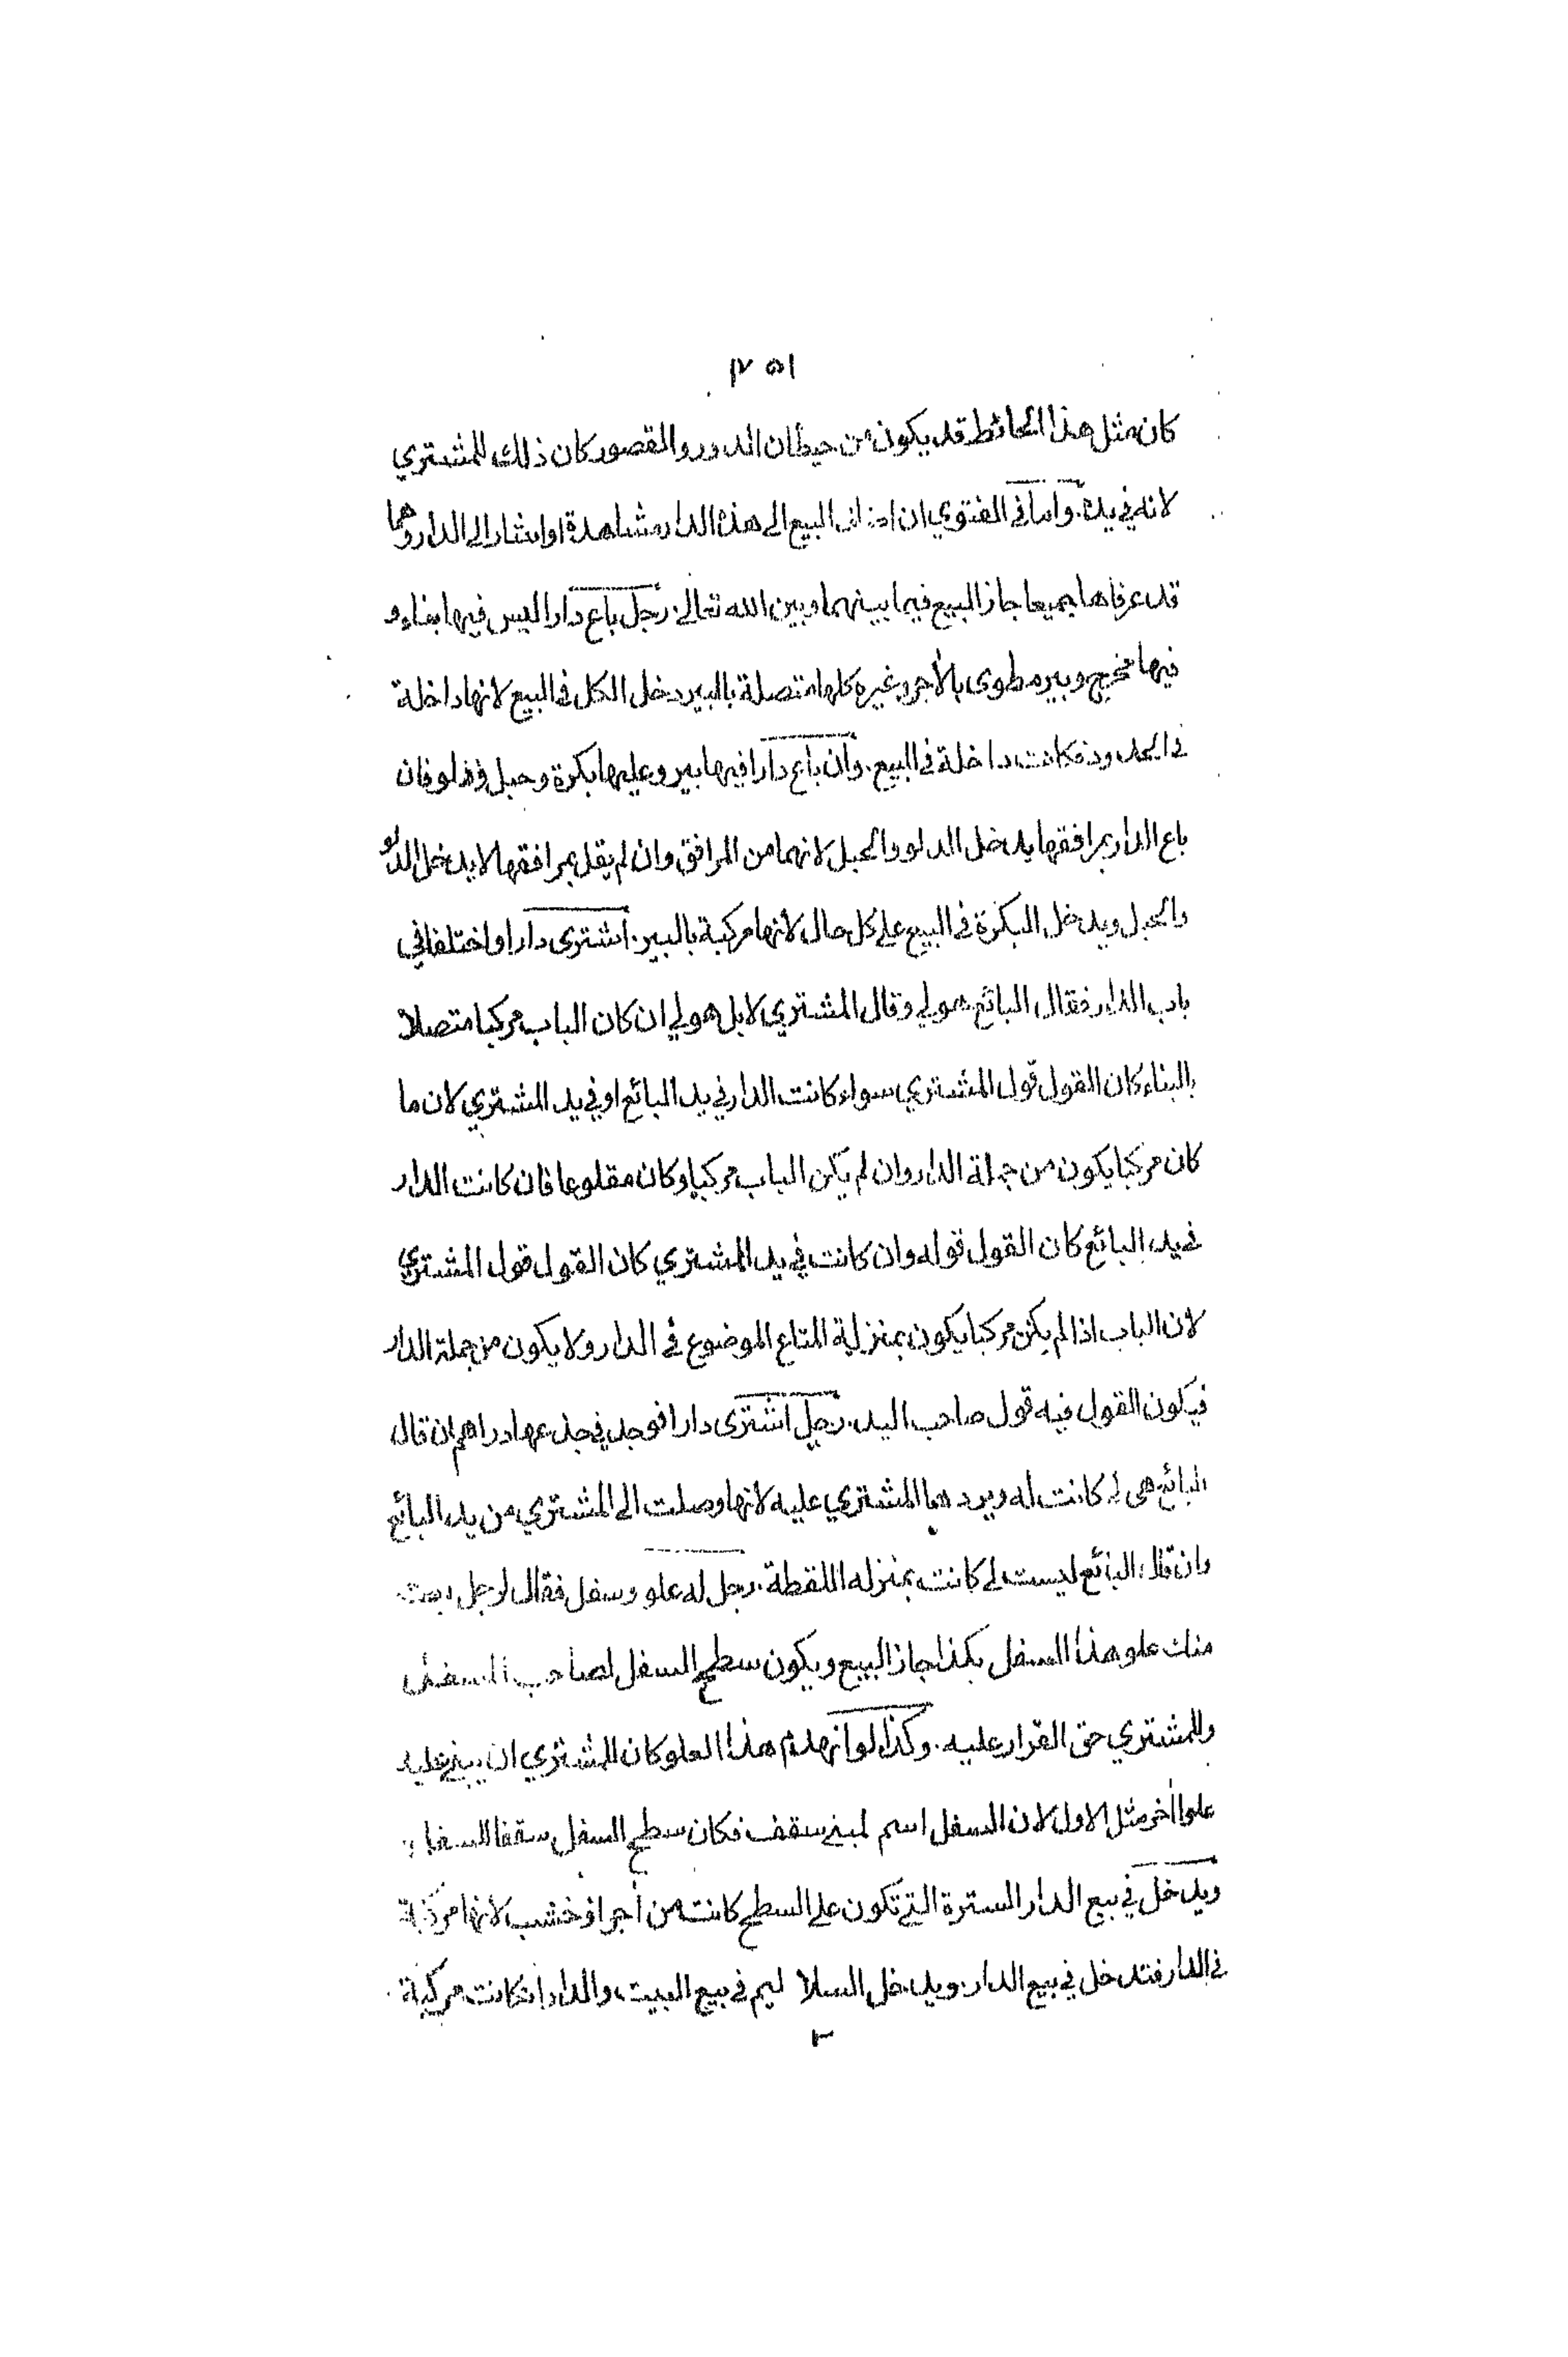 كان مثل هذا الحائط قد يكون من حيطان الدور والقصور كان ذلك للمشتري
لانه في يده. واما في الفتوي ان اضافا البيع الى هذه الدار مشاهدة او اشار الى الدار وهما
قد عرفاها جميعا جاز البيع فيما بينهما وبين الله تعالى. رجل باع دارا ليس فيها بناء و
فيها مخرج وبير مطوى بالأجر وغيره كلها متصلة بالبير دخل الكل في البيع لانها داخلة
في الحدود فكانت داخلة في البيع. وان باع دارا فيها بير وعليها بكرة وحبل ودلو فان
باع الدار بمرافقها يدخل الدلو والحبل لانهما من المرافق وان لم يقل بمرافقها لا يدخل الدلو
والحبل ويدخل البكرة في البيع على كل حال لانها مركبة بالبير. اشترى دارا واختلفا في
باب الدار فقال البائع هو لي وقال المشتري لا بل هو لي ان كان الباب مركبا متصلا
بالبناء كان القول قول المشتري سواء كانت الدار في يد البائع او في يد المشتري لان ما
كان مركبا يكون من جملة الدار وان لم يكن الباب مركبا وكان مقلوعا فان كانت الدار
في يد البائع كان القول قوله وان كانت في يد المشتري كان القول قول المشتري
لان الباب اذا لم يكن مركبا يكون بمنزلة المتاع الموضوع في الدار ولا يكون من جملة الدار
فيكون القول فيه قول صاحب اليد. رجل اشترى دارا فوجد في جذعها دراهم ان قال
البائع هى لي كانت له ويردها المشتري عليه لانها وصلت الى المشتري من يد البائع
وان قال البائع ليست لي كانت بمنزله اللقطة. رجل له علو وسفل فقال لرجل بعت
منك علو هذا السفل بكذا جاز البيع ويكون سطح السفل لصاحب السفل
وللمشتري حق القرار عليه. وكذا لو انهدم هذا العلو كان للمشتري ان يبني عليه
علوا أخر مثل الاول لان السفل اسم لمبنى سقف فكان سطح السفل سقفا للسفل
ويدخل في بيع الدار السترة التي تكون على السطح كانت من أجر او خشب لانها مركبة
في الدار فتدخل في بيع الدار. ويدخل السلاليم في بيع البيت والدار ان كانت مركبة